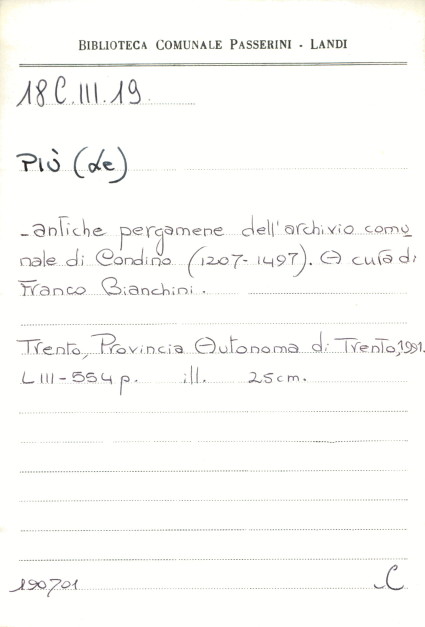 BIBLIOTECA COMUNALE PASSERINI - LANDI
18C.III.19
PIÙ (Le)
- antiche pergamene dell'archivio comu
nale di Condino (1207-1497). A cura di
Franco Bianchini.
Trento, Provincia Autonoma di Trento, 1991.
LIII-554 p. ill. 25cm.
190701 C